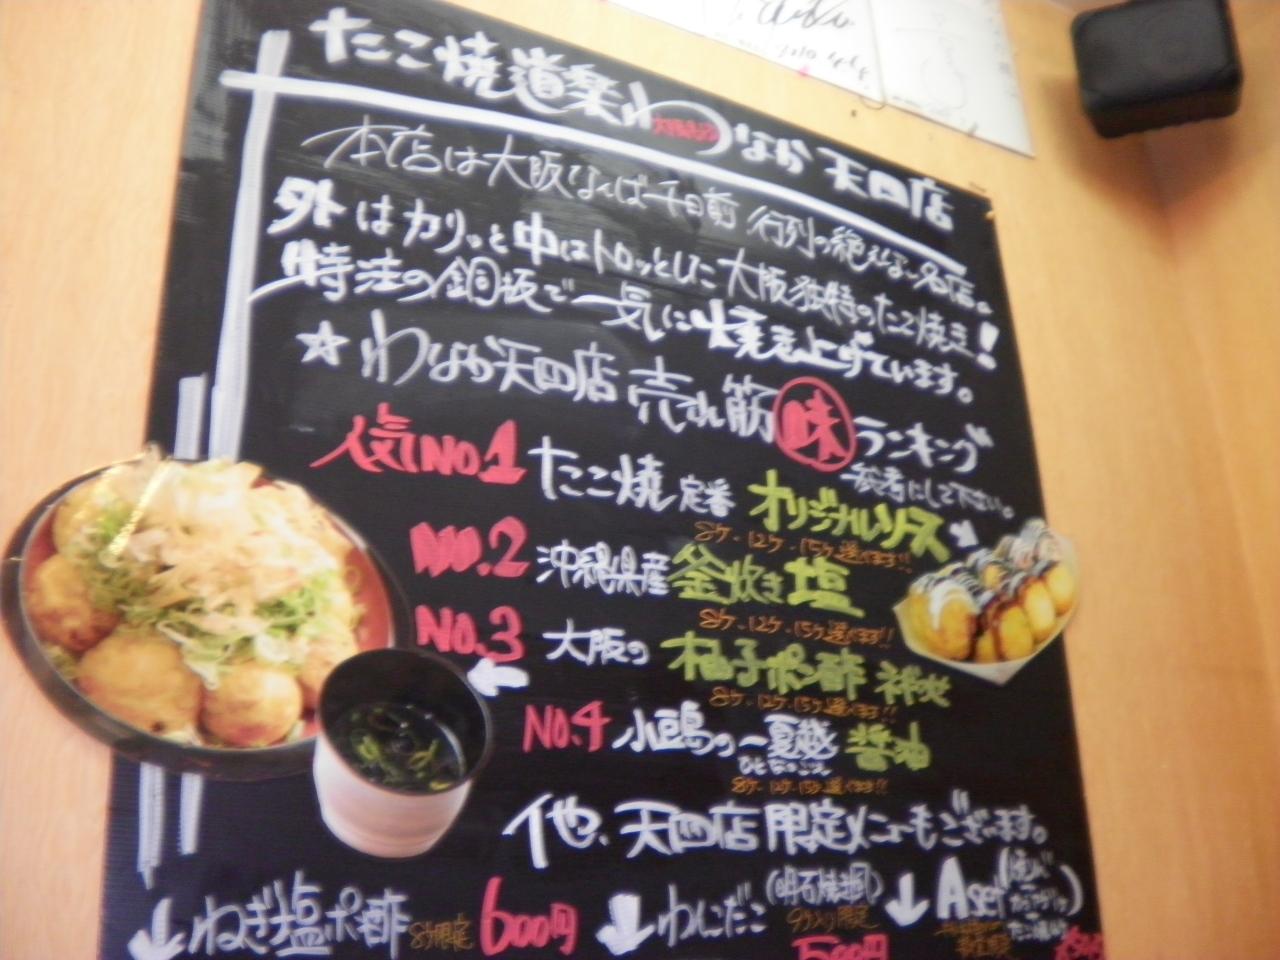 たこ焼道楽わなか 天四店
本店は大阪なんば千日前 行列の絶えない名店。
外はカリッと中はトロッとした大阪独特のたこ焼き!
特注の銅板で一気に焼き上げています。
☆わなか天四店 売れ筋味ランキング
参考にして下さい。
人気NO.1 たこ焼 定番 オリジナルソース
8ケ・12ケ・15ケ選べます!!
NO.2 沖縄県産釜炊き塩
8ケ・12ケ・15ケ選べます!!
NO.3 大阪の 柚子ポン酢
8ケ・12ケ・15ケ選べます!!
NO.4 小豆島の一夏越醤油
ひとなつこえ
8ケ・12ケ・15ケ選べます!!
他、天四店限定メニューもございます。
ねぎ塩ポン酢 8ケ限定 600円
わにだこ (明石焼風) 9ケ入り限定 500円
Aset